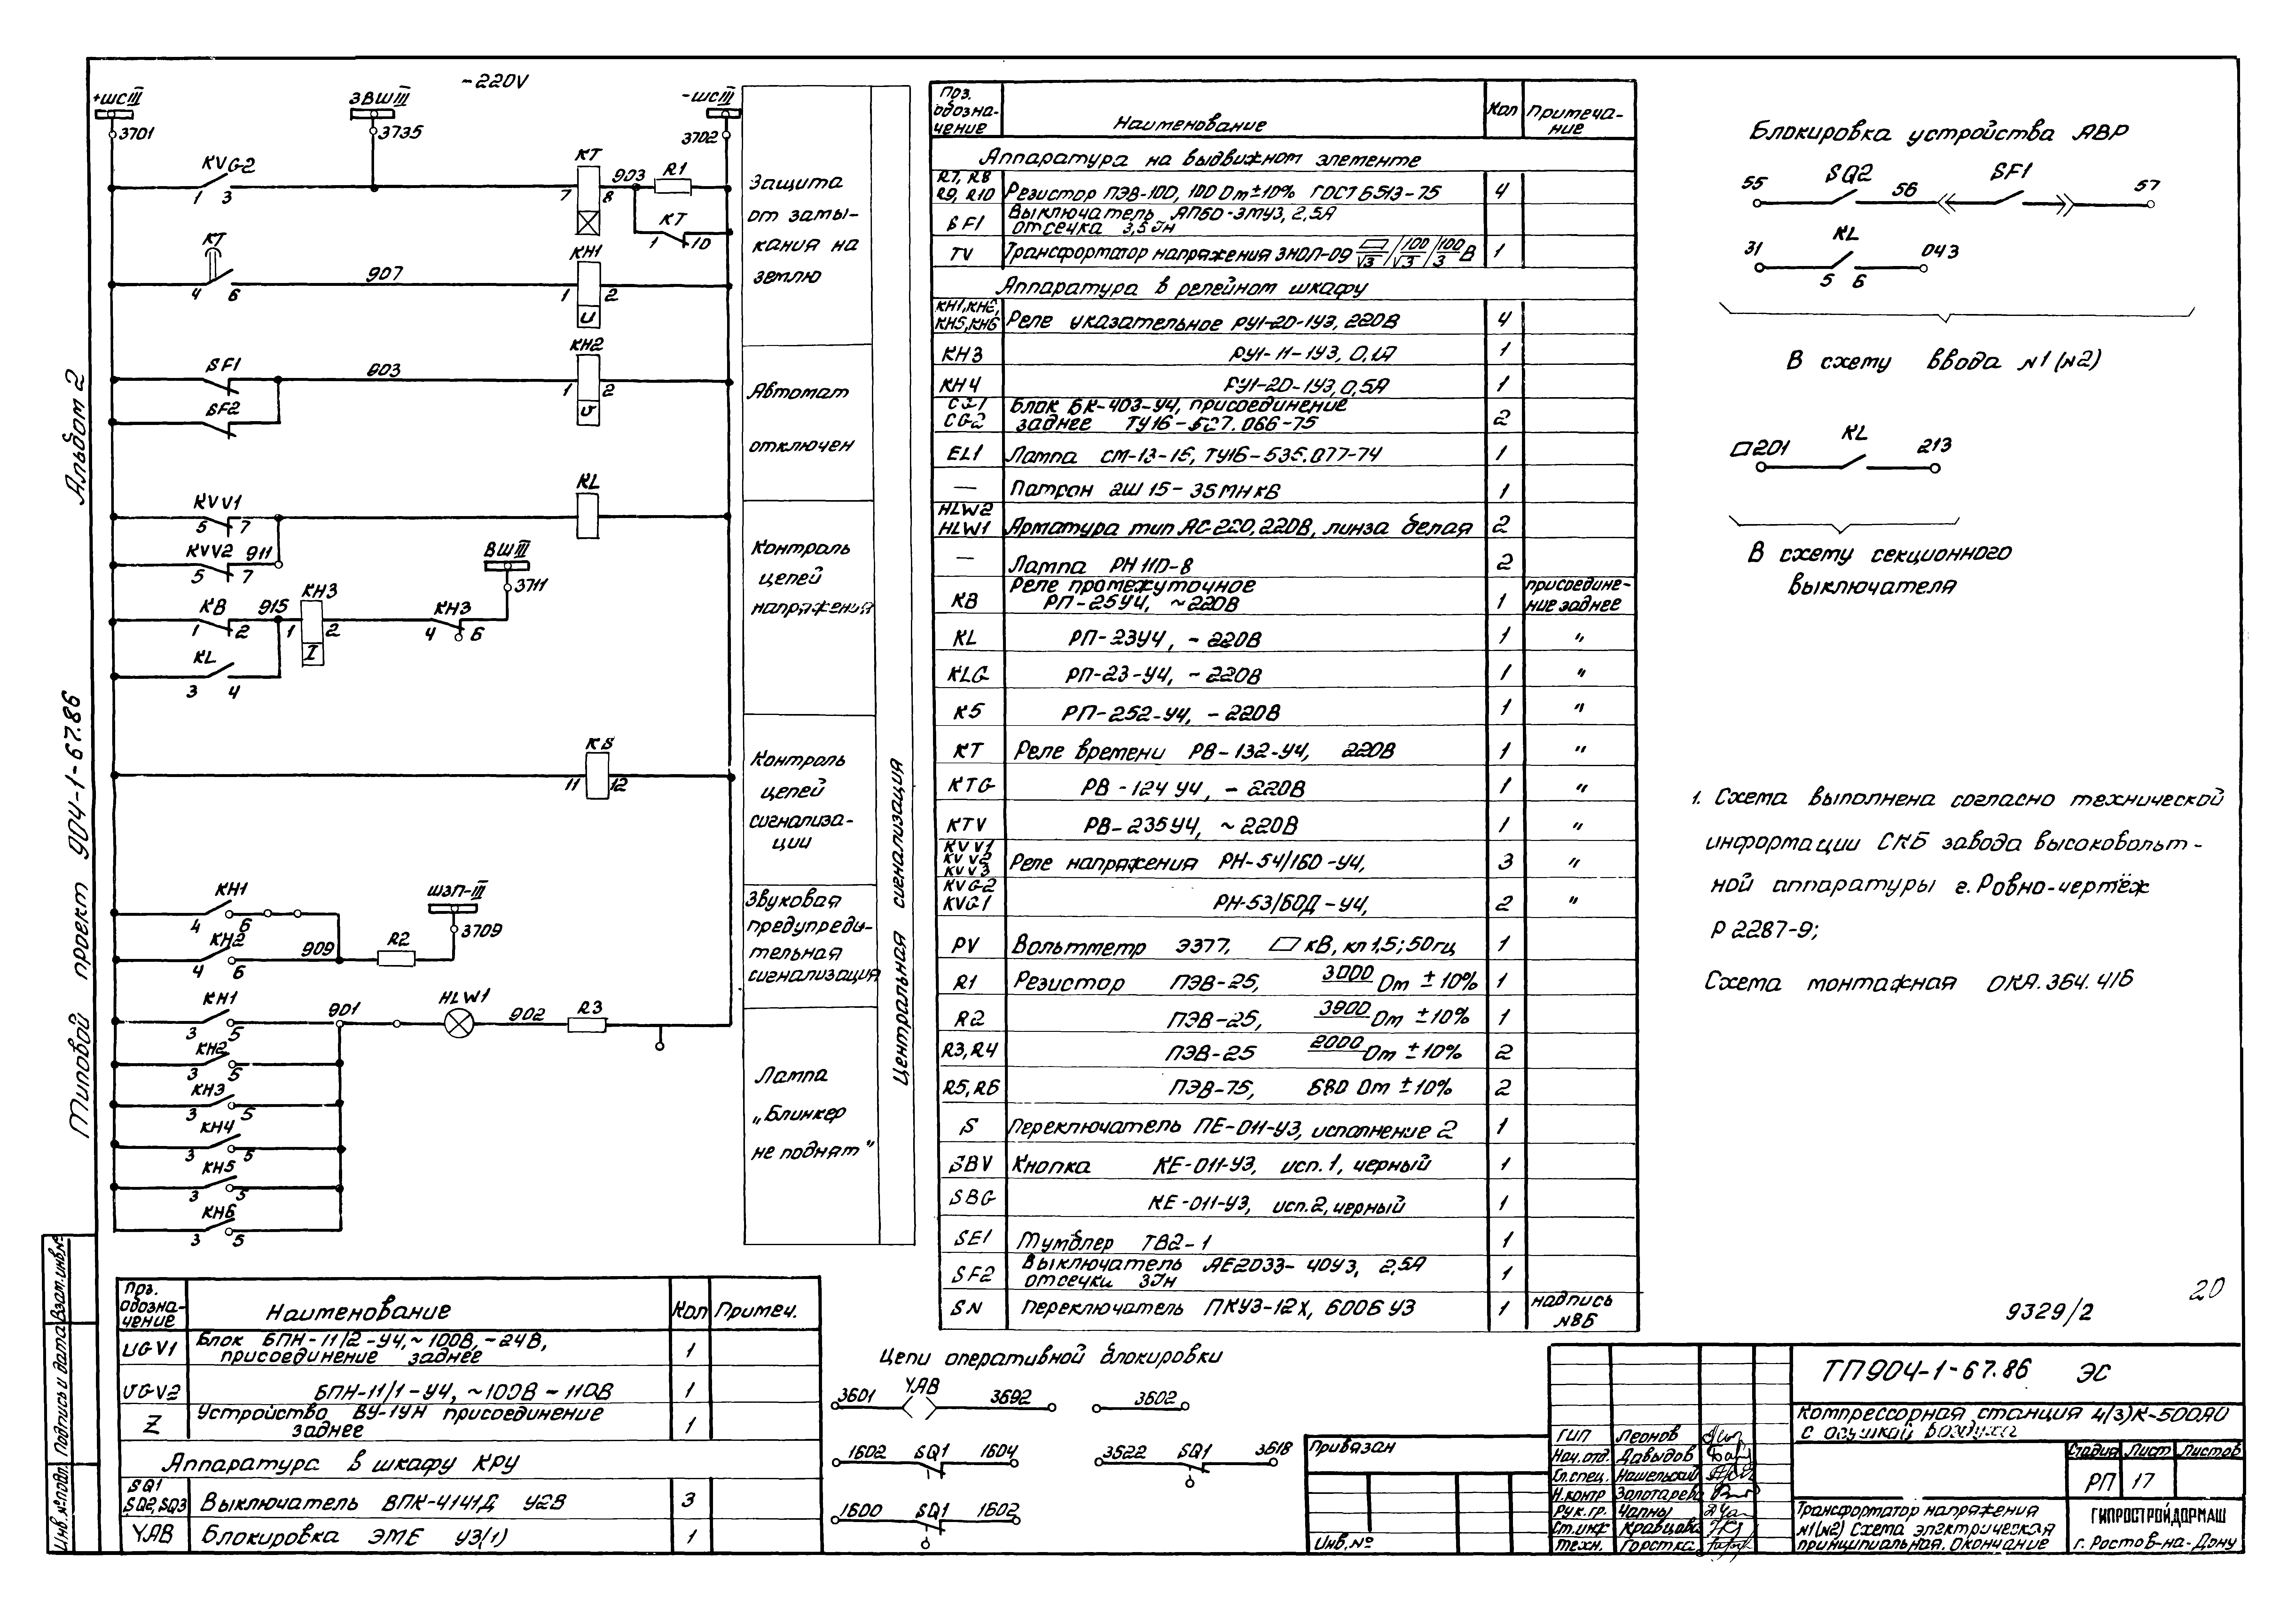 Альбом 2
Типовой проект 904-1-67.86
-220V
+ШСIII
3701
ЗВШIII
3735
-ШСIII
3702
KVG2
1 3
KT
7 8
903
R1
KT
1 10
KT
4 6
907
KH1
1 2
U
SF1
903
KH2
1 2
U
SF2
KVV1
5 7
KL
KVV2
911
5 7
ВШIII
3711
KB
1 2
915
KH3
1 2
I
KH3
4 6
KL
3 4
11 12
KH1
4 6
ШЗП-III
3709
KH2
4 6
909
R2
KH1
3 5
901
HLW1
902
R3
KH2
3 5
KH3
3 5
KH4
3 5
KH5
3 5
KH6
3 5
Защита
от замы-
кания на
землю
Автомат
отключен
Контроль
цепей
напряжения
Контроль
цепей
сигнализа-
ции
Звуковая
предупреди-
тельная
сигнализация
Лампа
„Блинкер
не поднят"
Центральная сигнализация
Поз. обозна-чение Наименование Кол Примеча-ние
Аппаратура на выдвижном элементе
R7, R8
R9, R10 Резистор ПЭВ-100, 100 Ом ±10% ГОСТ 6513-75 4
SF1 Выключатель АП50-3МУ3, 2,5А
отсечка 3,5Iн
TV Трансформатор напряжения ЗНОЛ-09 ▱/√3 / 100/√3 / 100/3 В 1
Аппаратура в релейном шкафу
KH1, KH2,
KH5, KH6 Реле указательное РУ1-20-1У3, 220В 4
KH3 РУ1-11-1У3, 0,1А 1
KH4 РУ1-20-1У3, 0,5А 1
CG1
CG2 Блок БК-403-У4, присоединение
заднее ТУ16-527.066-75 2
EL1 Лампа СМ-13-15, ТУ16-535.077-74 1
— Патрон 2Ш 15-35МНКВ 1
HLW2
HLW1 Арматура тип АС 220, 220В, линза белая 2
— Лампа РН 110-8 2
KB Реле промежуточное
РП-25У4, ~220В 1 присоедине-
ние заднее
KL РП-23У4, -220В 1 "
KLG РП-23-У4, -220В 1 "
К5 РП-252-У4, -220В 1 "
KT Реле времени РВ-132-У4, 220В 1 "
KTG РВ-124 У4, -220В 1 "
KTV РВ-235У4, ~220В 1 "
KVV1
KVV2
KVV3 Реле напряжения РН-54/160-У4, 3 "
KVG2
KVG1 РН-53/60Д-У4, 2 "
PV Вольтметр Э377, ▱ кВ, кл 1,5; 50гц 1
R1 Резистор ПЭВ-25, 3000 Ом ±10% 1
R2 ПЭВ-25, 3900 Ом ±10% 1
R3, R4 ПЭВ-25 2000 Ом ±10% 2
R5, R6 ПЭВ-75, 680 Ом ±10% 2
S Переключатель ПЕ-011-У3, исполнение 2 1
SBV Кнопка КЕ-011-У3, исп. 1, черный 1
SBG КЕ-011-У3, исп. 2, черный 1
SE1 Тумблер ТВ2-1 1
SF2 Выключатель АЕ2033-40У3, 2,5А
отсечки 3Iн 1
SN переключатель ПКУ3-12Х, 6006 У3 1 надпись
№86
Блокировка устройства АВР
55 SQ2 56 SF1 57
31 KL 043
5 6
В схему ввода №1 (№2)
▱201 KL 213
В схему секционного
выключателя
1. Схема выполнена согласно технической
информации СКБ завода высоковольт-
ной аппаратуры г. Ровно-чертёж
Р 2287-9;
Схема монтажная ОКА.364.416
20
9329/2
Поз. обозна-чение Наименование Кол Примеч.
UGV1 Блок БПН-11/2-У4, ~100В, -24В,
присоединение заднее 1
UGV2 БПН-11/1-У4, ~100В - 110В 1
Z Устройство ВУ-1УН присоединение
заднее 1
Аппаратура в шкафу КРУ
SQ1
SQ2, SQ3 Выключатель ВПК-4141Д У2В 3
YAB Блокировка ЭМЕ У3(1) 1
Цепи оперативной блокировки
3601 YAB 3692
3602
1602 SQ1 1604
3522 SQ1 3618
1600 SQ1 1602
Привязан
Инв. №
ТП904-1-67.86 ЭС
Компрессорная станция 4(3)К-500АО
с осушкой воздуха
ГИП Леонов
Нач.отд. Давыдов
Гл.спец. Нашельский
Н.контр Золотарева
Рук.гр. Чапны
Ст.инж Кравцова
Техн. Горстка
Стадия Лист Листов
РП 17
Трансформатор напряжения
№1(№2) Схема электрическая
принципиальная. Окончание
ГИПРОСТРОЙДОРМАШ
г. Ростов-на-Дону
Взам.инв.№
Подпись и дата
Инв.№подл.